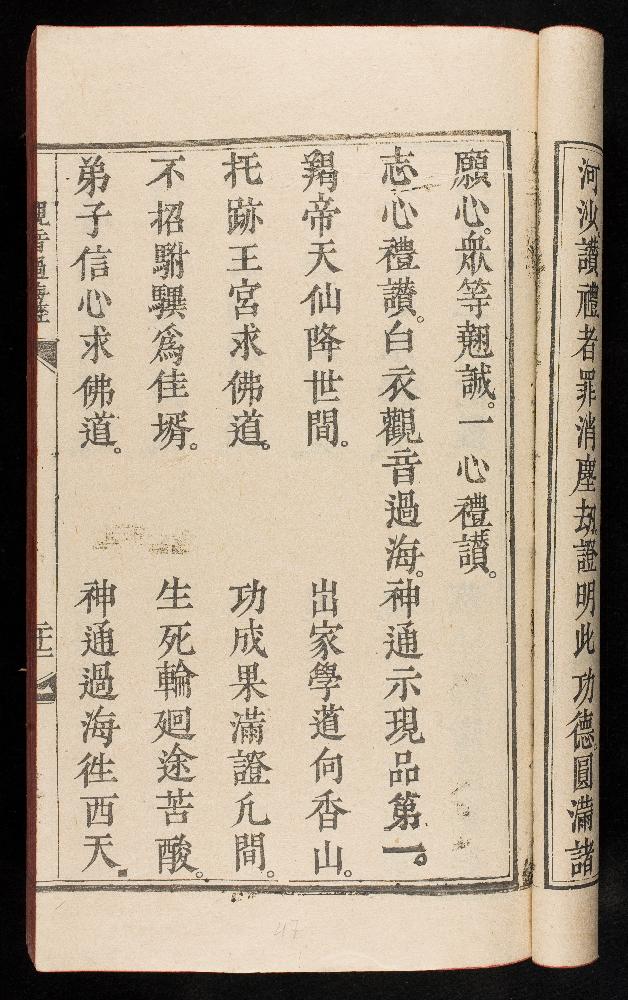 河沙讚禮者罪消塵劫證明此功德圓滿諸
願心。衆等翹誠。一心禮讚。
志心禮讚。白衣觀音過海。神通示現品第一。
羯帝天仙降世間。出家學道向香山。
托跡王宮求佛道。功成果滿證凡間。
不招駙驥爲佳壻。生死輪廻途苦酸。
弟子信心求佛道。神通過海徃西天。
觀音過海經
二十二
47